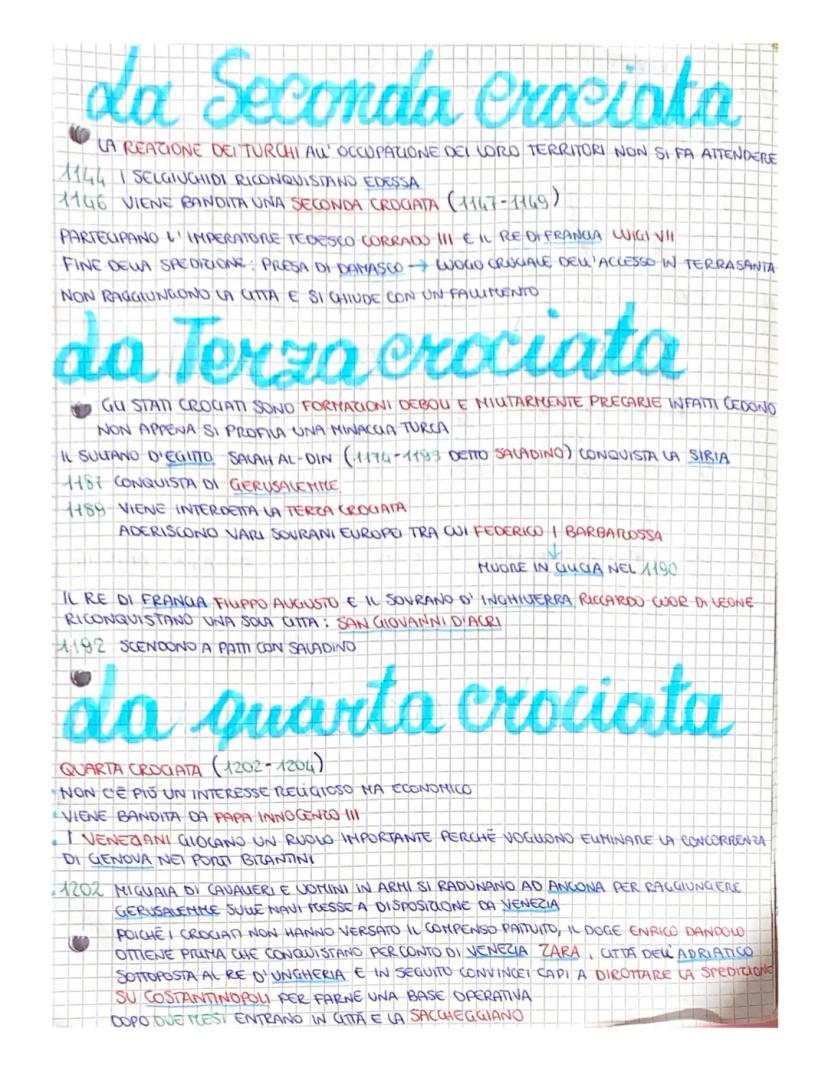 La Seconda crociata
LA REAZIONE DEI TURCHI ALL' OCCUPAZIONE DEI LORO TERRITORI NON SI FA ATTENDERE
1144 I SELGIUCHIDI RICONQUISTANO EDESSA
1146 VIENE BANDITA UNA SECONDA CROCIATA (1147-1149)
PARTECIPANO L'IMPERATORE TEDESCO CORRADO III E IL RE DI FRANCIA LUIGI VII
FINE DELLA SPEDIZIONE: PRESA DI DAMASCO → LUOGO CRUCIALE DELL'ACCESSO IN TERRASANTA
NON RAGGIUNGONO LA CITTÀ E SI CHIUDE CON UN FALLIMENTO
La Terza crociata
GLI STATI CROCIATI SONO FORMAZIONI DEBOLI E MILITARMENTE PRECARIE INFATTI CEDONO
NON APPENA SI PROFILA UNA MINACCIA TURCA
IL SULTANO D'EGITTO SALAH AL-DIN (1174-1193 DETTO SALADINO) CONQUISTA LA SIRIA
1187 CONQUISTA DI GERUSALEMME
1189 VIENE INTERDETTA LA TERZA CROCIATA
ADERISCONO VARI SOVRANI EUROPEI TRA CUI FEDERICO I BARBAROSSA
↓
MUORE IN CILICIA NEL 1190
IL RE DI FRANCIA FILIPPO AUGUSTO E IL SOVRANO D' INGHILTERRA RICCARDO CUOR DI LEONE
RICONQUISTANO UNA SOLA CITTÀ: SAN GIOVANNI D'ACRI
1192 SCENDONO A PATTI CON SALADINO
La quarta crociata
QUARTA CROCIATA (1202-1204)
NON C'È PIÙ UN INTERESSE RELIGIOSO MA ECONOMICO
VIENE BANDITA DA PAPA INNOCENZO III
I VENEZIANI GIOCANO UN RUOLO IMPORTANTE PERCHÈ VOGLIONO ELIMINARE LA CONCORRENZA
DI GENOVA NEI PORTI BIZANTINI
1202 MIGLIAIA DI CAVALIERI E UOMINI IN ARMI SI RADUNANO AD ANCONA PER RAGGIUNGERE
GERUSALEMME SULLE NAVI MESSE A DISPOSIZIONE DA VENEZIA
POICHÈ I CROCIATI NON HANNO VERSATO IL COMPENSO PATTUITO, IL DOGE ENRICO DANDOLO
OTTIENE PRIMA CHE CONQUISTANO PER CONTO DI VENEZIA ZARA, CITTÀ DELL'ADRIATICO
SOTTOPOSTA AL RE D'UNGHERIA E IN SEGUITO CONVINCE I CAPI A DIROTTARE LA SPEDIZIONE
SU COSTANTINOPOLI PER FARNE UNA BASE OPERATIVA
DOPO DUE MESI ENTRANO IN CITTÀ E LA SACCHEGGIANO